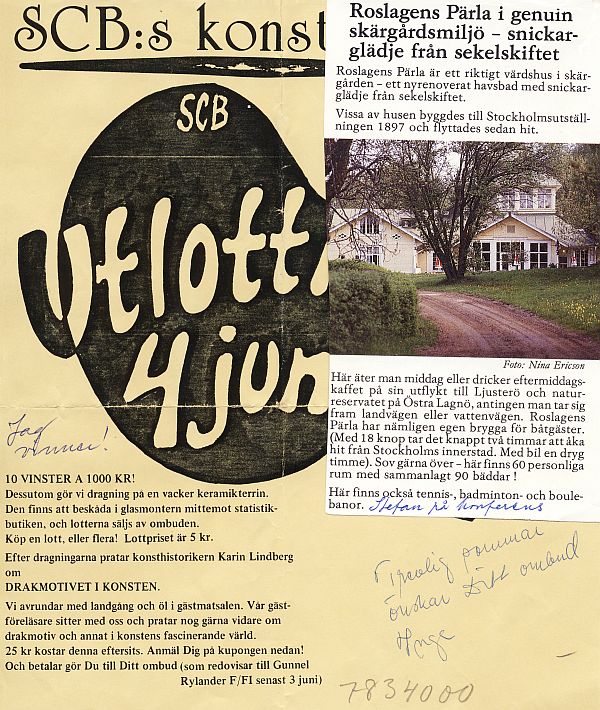 SCB:s konst
SCB
Utlott
4 jun
Jag
vinner!
10 VINSTER A 1000 KR!
Dessutom gör vi dragning på en vacker keramikterrin.
Den finns att beskåda i glasmontern mittemot statistik-
butiken, och lotterna säljs av ombuden.
Köp en lott, eller flera!  Lottpriset är 5 kr.
Efter dragningarna pratar konsthistorikern Karin Lindberg
om
DRAKMOTIVET I KONSTEN.
Vi avrundar med landgång och öl i gästmatsalen. Vår gäst-
föreläsare sitter med oss och pratar nog gärna vidare om
drakmotiv och annat i konstens fascinerande värld.
25 kr kostar denna eftersits. Anmäl Dig på kupongen nedan!
Och betalar gör Du till Ditt ombud (som redovisar till Gunnel
Rylander F/FI senast 3 juni)
Roslagens Pärla i genuin
skärgårdsmiljö – snickar-
glädje från sekelskiftet
Roslagens Pärla är ett riktigt värdshus i skär-
gården – ett nyrenoverat havsbad med snickar-
glädje från sekelskiftet.
Vissa av husen byggdes till Stockholmsutställ-
ningen 1897 och flyttades sedan hit.
Foto: Nina Ericson
Här äter man middag eller dricker eftermiddags-
kaffet på sin utflykt till Ljusterö och natur-
reservatet på Östra Lagnö, antingen man tar sig
fram landvägen eller vattenvägen. Roslagens
Pärla har nämligen egen brygga för båtgäster.
(Med 18 knop tar det knappt två timmar att åka
hit från Stockholms innerstad. Med bil en dryg
timme). Sov gärna över – här finns 60 personliga
rum med sammanlagt 90 bäddar !
Här finns också tennis-, badminton- och boule-
banor. Stefan på konferens
Trevlig sommar
önskar Ditt ombud
7834000